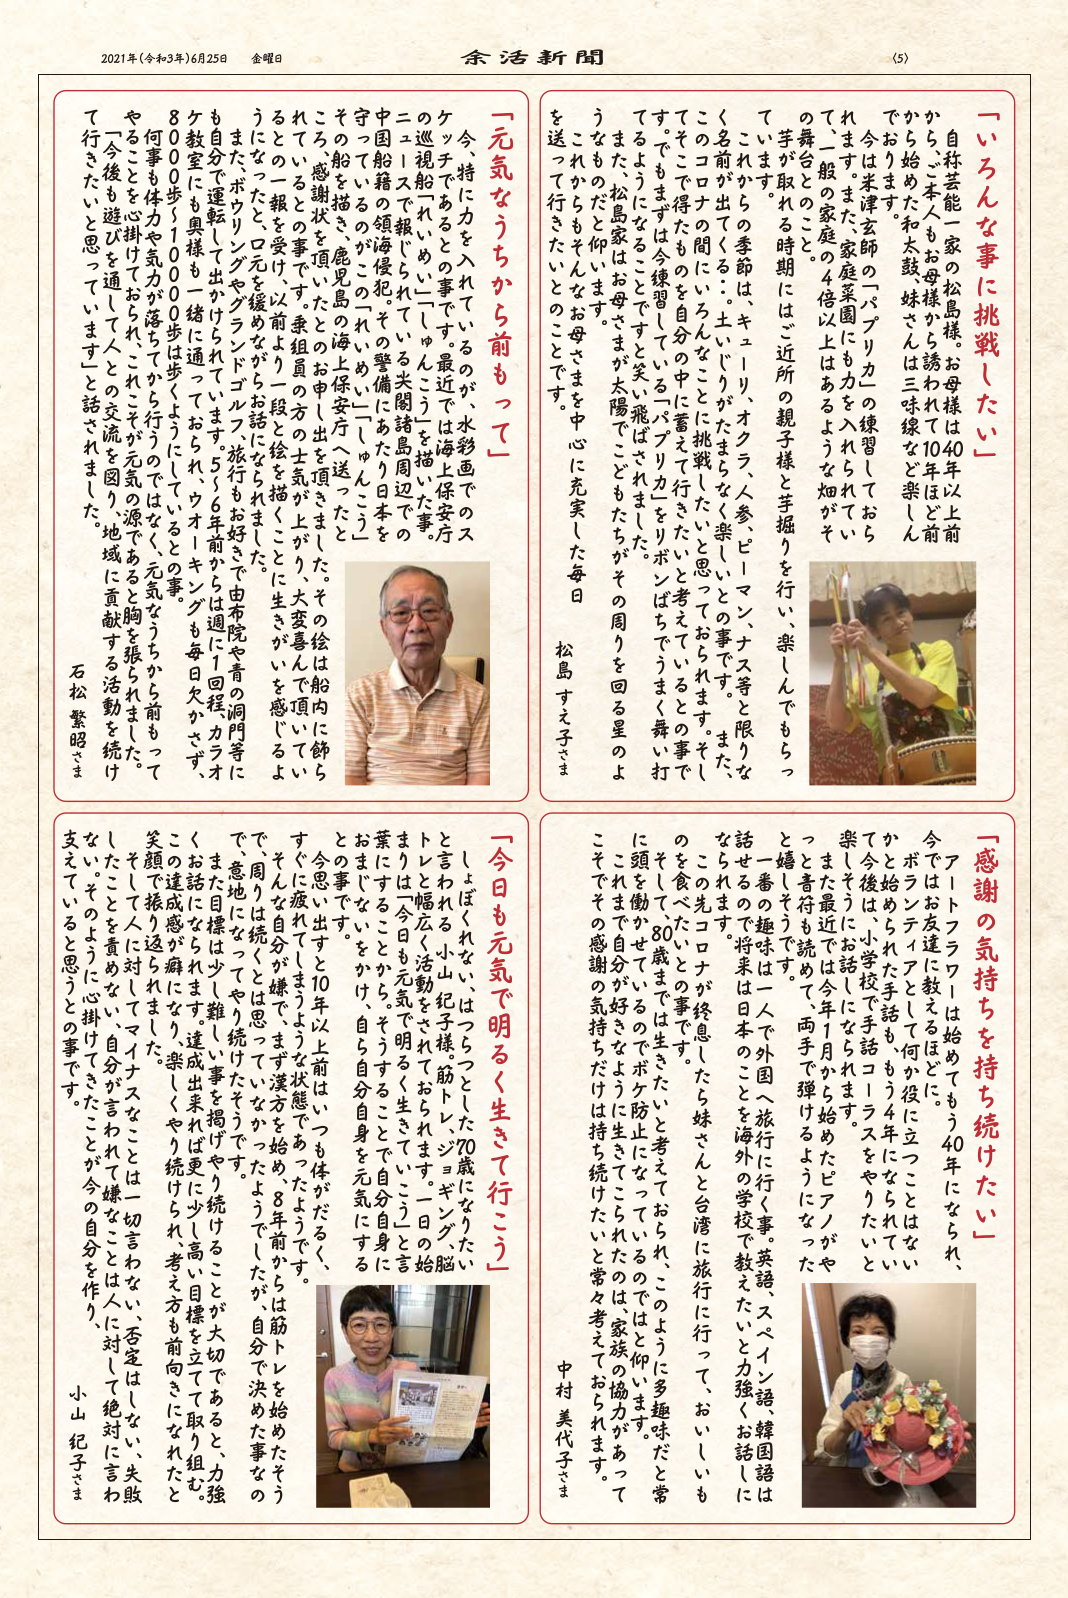 2021年(令和3年)6月25日　金曜日
余活新聞
〈5〉
「いろんな事に挑戦したい」
自称芸能一家の松島様。お母様は40年以上前
から、ご本人もお母様から誘われて10年ほど前
から始めた和太鼓、妹さんは三味線など楽しん
でおります。
今は米津玄師の「パプリカ」の練習しておら
れます。また、家庭菜園にも力を入れられてい
て、一般の家庭の4倍以上はあるような畑がそ
の舞台とのこと。
芋が取れる時期にはご近所の親子様と芋掘りを行い、楽しんでもらっ
ています。
これからの季節は、キューリ、オクラ、人参、ピーマン、ナス等と限りな
く名前が出てくる：。土いじりがたまらなく楽しいとの事です。　また、
このコロナの間にいろんなことに挑戦したいと思っておられます。そし
てそこで得たものを自分の中に蓄えて行きたいと考えているとの事で
す。でもまずは今練習している「パプリカ」をリボンばちでうまく舞い打
てるようになることですと笑い飛ばされました。
また、松島家はお母さまが太陽でこどもたちがその周りを回る星のよ
うなものだと仰います。
これからもそんなお母さまを中心に充実した毎日
を送って行きたいとのことです。
松島 すえ子さま
「元気なうちから前もって」
今、特に力を入れているのが、水彩画でのス
ケッチであるとの事です。最近では海上保安庁
の巡視船「れいめい」「しゅんこう」を描いた事。
ニュースで報じられている尖閣諸島周辺での
中国船籍の領海侵犯。その警備にあたり日本を
守っているのがこの「れいめい」「しゅんこう」
その船を描き、鹿児島の海上保安庁へ送ったと
ころ、感謝状を頂いたとのお申し出を頂きました。その絵は船内に飾ら
れているとの事です。乗組員の方の士気が上がり、大変喜んで頂いてい
るとの一報を受け、以前より一段と絵を描くことに生きがいを感じるよ
うになったと、口元を緩めながらお話になられました。
また、ボウリングやグランドゴルフ、旅行もお好きで由布院や青の洞門等に
も自分で運転して出かけられています。5～6年前からは週に1回程、カラオ
ケ教室にも奥様も一緒に通っておられ、ウオーキングも毎日欠かさず、
8000歩～10000歩は歩くようにしているとの事。
何事も体力や気力が落ちてから行うのではなく、元気なうちから前もって
やることを心掛けておられ、これこそが元気の源であると胸を張られました。
「今後も遊びを通して人との交流を図り、地域に貢献する活動を続け
て行きたいと思っています」と話されました。
石松 繁昭さま
「感謝の気持ちを持ち続けたい」
アートフラワーは始めてもう40年になられ、
今ではお友達に教えるほどに。
ボランティアとして何か役に立つことはない
かと始められた手話も、もう4年になられてい
て今後は、小学校で手話コーラスをやりたいと
楽しそうにお話しになられます。
また最近では今年1月から始めたピアノがや
っと音符も読めて、両手で弾けるようになった
と嬉しそうです。
一番の趣味は一人で外国へ旅行に行く事。英語、スペイン語、韓国語は
話せるので将来は日本のことを海外の学校で教えたいと力強くお話しに
なられます。
この先コロナが終息したら妹さんと台湾に旅行に行って、おいしいも
のを食べたいとの事です。
そして、80歳までは生きたいと考えておられ、このように多趣味だと常
に頭を働かせているのでボケ防止になっているのではと仰います。
これまで自分が好きなように生きてこられたのは、家族の協力があって
こそでその感謝の気持ちだけは持ち続けたいと常々考えておられます。
中村 美代子さま
「今日も元気で明るく生きて行こう」
しょぼくれない、はつらつとした70歳になりたい
と言われる 小山 紀子様。筋トレ、ジョギング、脳
トレと幅広く活動をされておられます。一日の始
まりは「今日も元気で明るく生きていこう」と言
葉にすることから。そうすることで自分自身に
おまじないをかけ、自ら自分自身を元気にする
との事です。
今思い出すと10年以上前はいつも体がだるく、
すぐに疲れてしまうような状態であったようです。
そんな自分が嫌で、まず漢方を始め、8年前からは筋トレを始めたそう
で、周りは続くとは思っていなかったようでしたが、自分で決めた事なの
で、意地になってやり続けたそうです。
また目標は少し難しい事を掲げやり続けることが大切であると、力強
くお話になられます。達成出来れば更に少し高い目標を立てて取り組む。
この達成感が癖になり、楽しくやり続けられ、考え方も前向きになれたと
笑顔で振り返られました。
そして人に対してマイナスなことは一切言わない、否定はしない、失敗
したことを責めない、自分が言われて嫌なことは人に対して絶対に言わ
ない。そのように心掛けてきたことが今の自分を作り、
支えていると思うとの事です。
小山 紀子さま